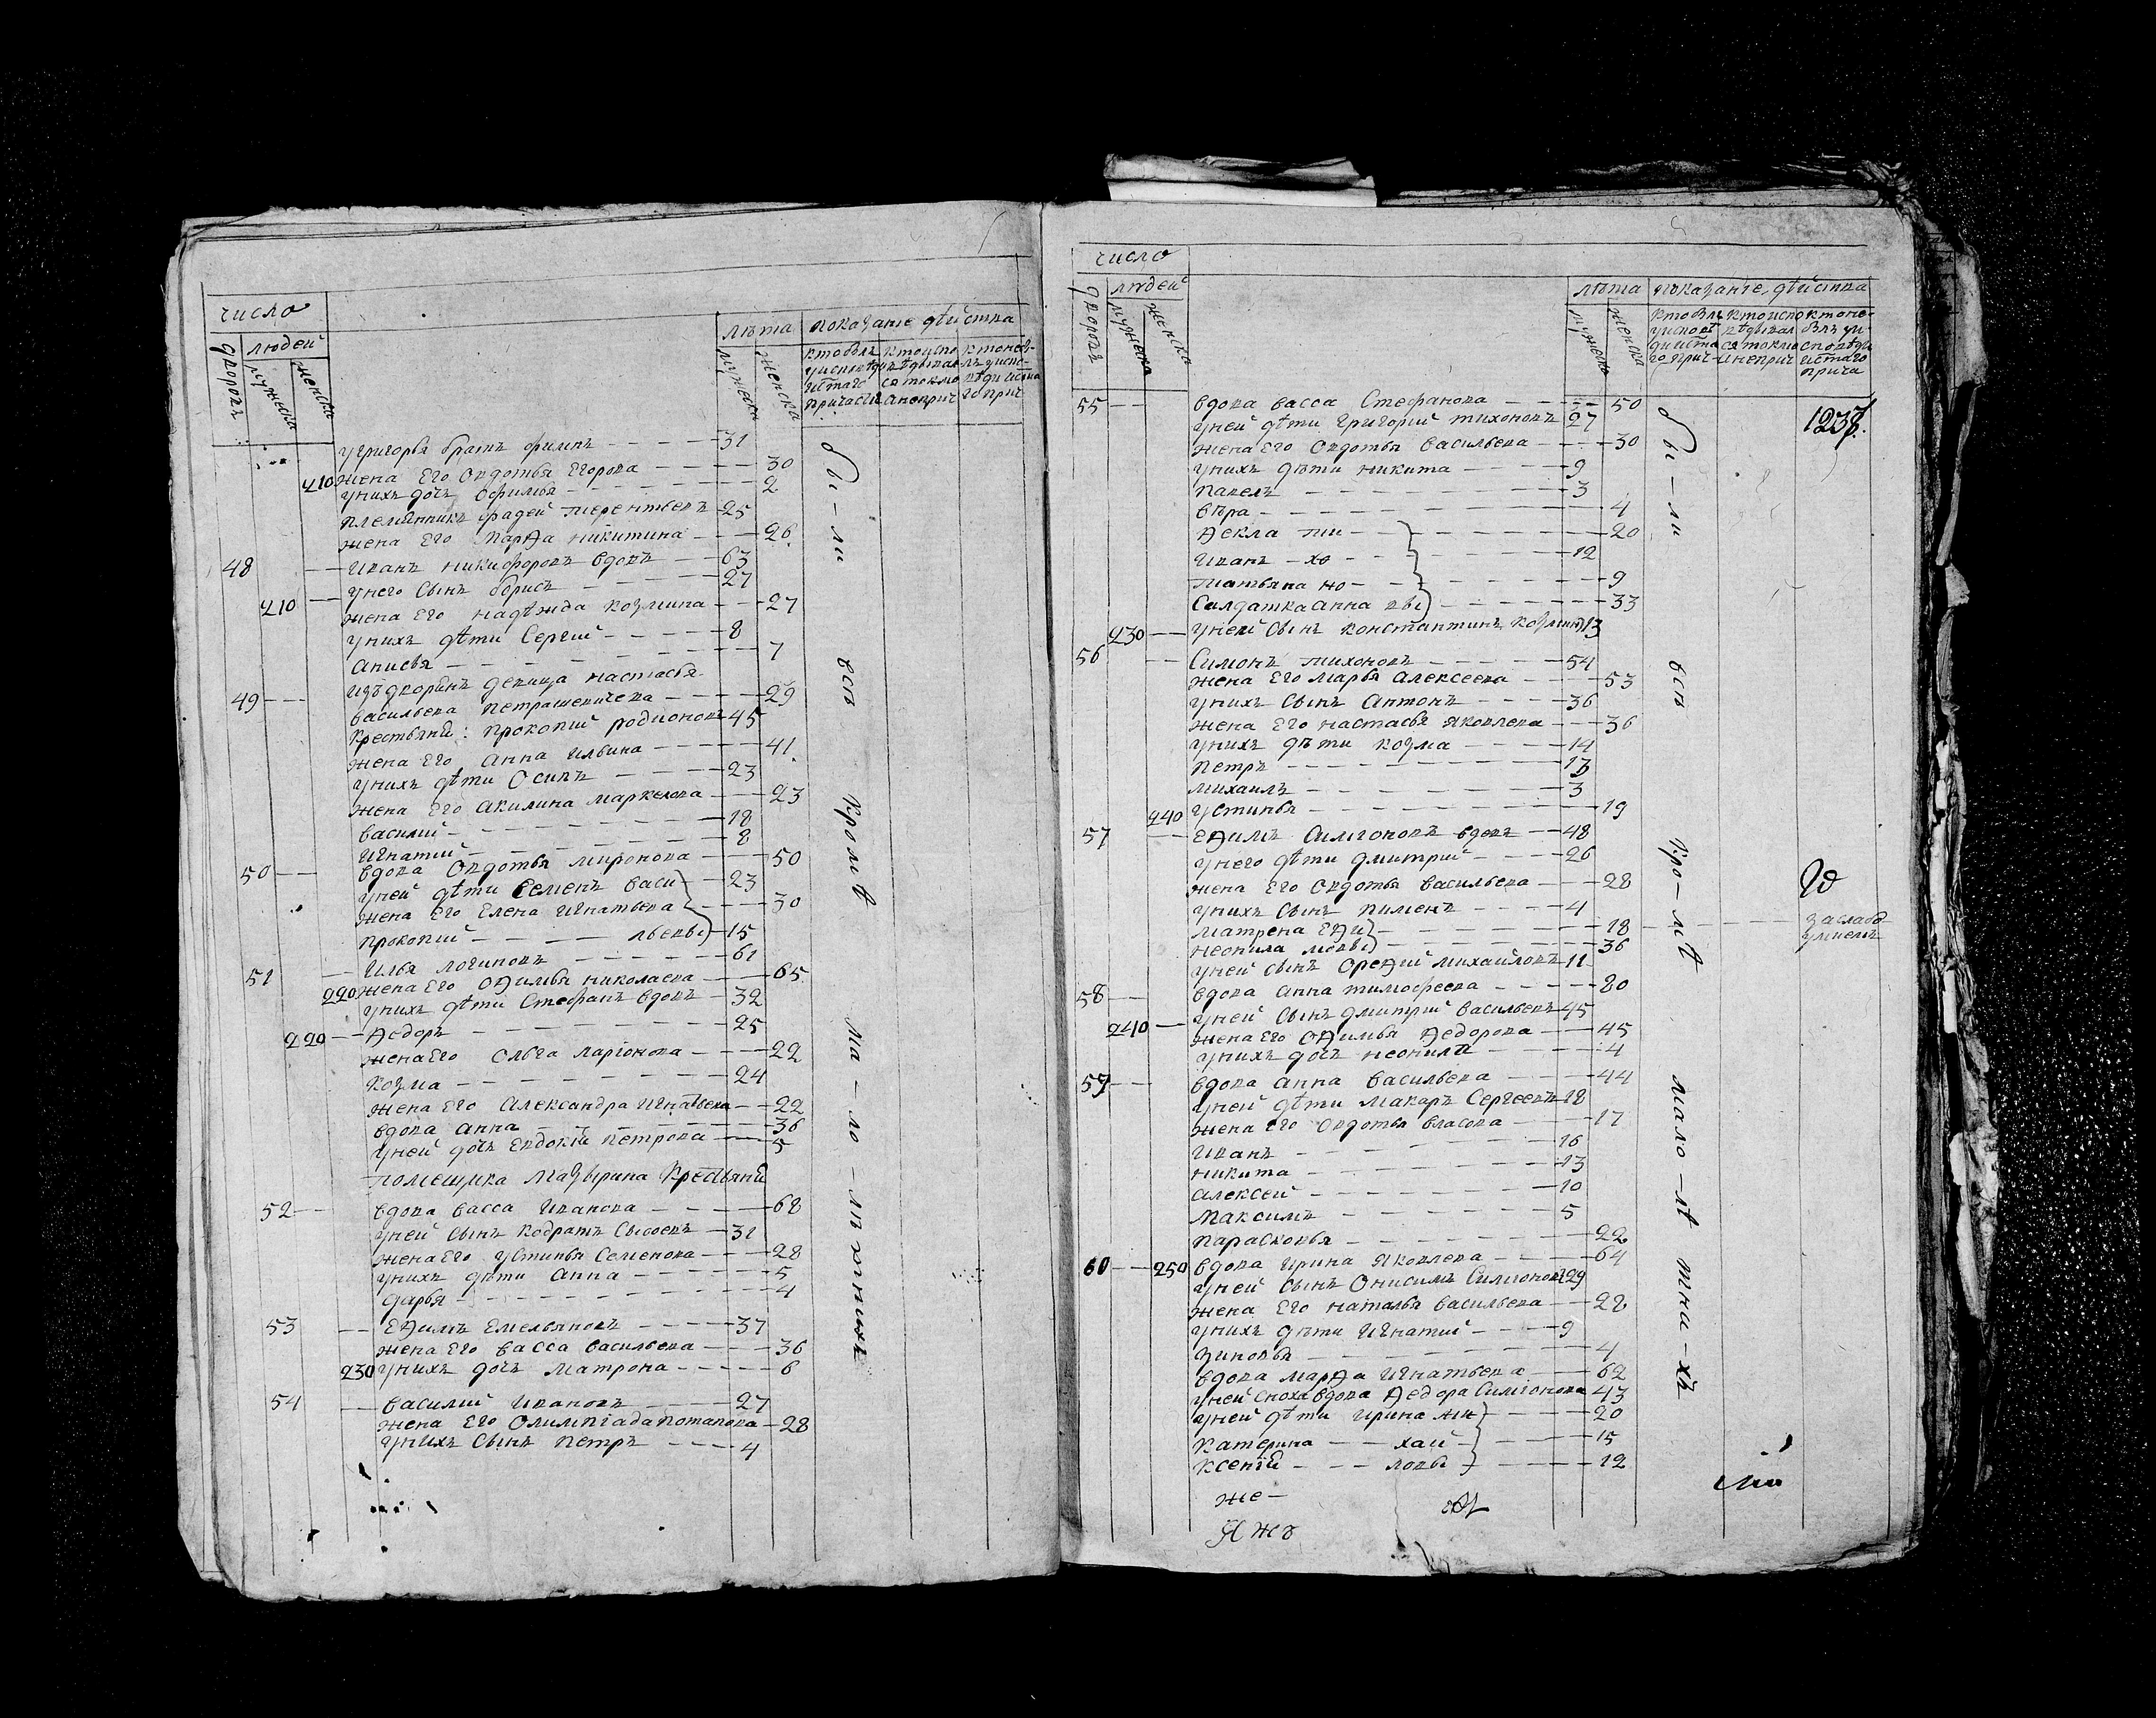 число
людей
дворовъ
мужеска
женска
лѣта
мужеска
женска
показание дѣйства
кто былъ
кто испо
у исповѣди
вѣдывал
и стаго
ся токмо
причастия
а неприч
210
у григорья братъ филипъ 31
жена Его Овдотья Егорова 30
у нихъ дочь Офимья 2
племянникъ фадей терентьевъ 25
жена Его Марѳа никитина 26
48 Иванъ никифоровъ вдовъ 63
210 у него сынъ борисъ 27
жена Его надѣжда козмина 27
у нихъ дѣти Сергий 8
анисья 7
49 изъ дворянъ девица настасья
васильева петрашевичева 29
Крестьяни: прокопий родионовъ 45
жена Его анна ильина 41
у нихъ дѣти Осипъ 23
жена Его акилина маркелова 23
василий 18
игнатий 8
50 вдова Овдотья миронова 50
у ней дѣти Семенъ васи 23
жена Его Елена игнатьева 30
прокопий льевы 15
51 илья логиновъ 61
220 жена Его Оѳимья николаева 65
у нихъ дѣти Стефанъ вдовъ 32
220 Ѳедоръ 25
жена Его Ольга Ларіонова 22
козма 24
жена Его александра игнатьева 22
вдова анна 36
у ней дочь Евдокия петрова 5
помещика Мазырина Крестьяни
52 вдова васса иванова 68
у ней сынъ кодратъ Сысоевъ 31
жена Его устинья Семенова 28
у нихъ дѣти анна 5
дарья 4
53 Еѳимъ Емельяновъ 37
жена Его васса васильева 36
230 у нихъ дочь матрона 6
54 василий ивановъ 27
жена Его Олимпіада потапова 28
у нихъ Сынъ петръ 4
бы-ли
всѣ
кромѣ
ма-ло-лѣтнихъ
число
людей
дворовъ
мужеска
женска
лѣта
мужеска
женска
показание дѣйства
1237.
55 вдова васса Стефанова 50
у ней дѣти григорий тихоновъ 27
жена Его Овдотья васильева 30
у нихъ дѣти никита 9
павелъ 3
вѣра 4
Ѳекла ти 20
иванъ хо 12
татьяна но 9
Салдатка анна вы 33
230 у ней Сынъ константинъ козминъ 13
56 Симонъ тихоновъ 54
жена Его марья алексеева 53
у нихъ Сынъ антонъ 36
жена Его настасья яковлева 36
у нихъ дѣти козма 14
петръ 13
михаилъ 3
240 устинья 19
57 Еѳимъ Симоновъ вдовъ 48
у него дѣти дмитрий 26
жена Его Овдотья васильева 28
у нихъ Сынъ пименъ 4
матрена Еѳи 18
неонила мовы 36
у ней Сынъ Ореѳий михайловъ 11
58 вдова анна тимофеева 80
240 у ней Сынъ дмитрий васильевъ 45
жена Его Оѳимья Ѳедорова 45
у нихъ дочь неонила 4
59 вдова анна васильева 44
у ней дѣти Макаръ Сергеевъ 18
жена Его Овдотья власова 17
иванъ 16
никита 13
алексей 10
Максимъ 5
парасковья 22
60 250 вдова ирина яковлева 64
у ней Сынъ Онисимъ Симоновъ 29
жена Его наталья васильева 28
у нихъ дѣти игнатий 9
зиновья 4
вдова марѳа игнатьева 62
у ней сноха вдова Ѳедора Симонова 43
у ней дѣти ирина ми 20
катерина хай 15
ксения ловы 12
бы-ли
всѣ
кро-мѣ
мало-лѣтни-хъ
же-